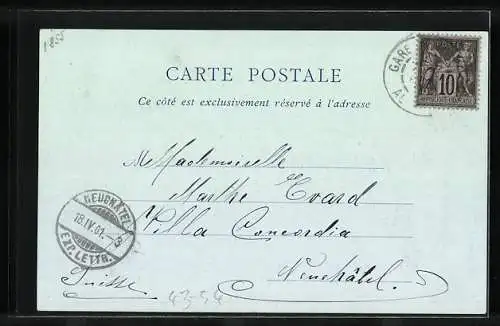 1855
CARTE POSTALE
Ce côté est exclusivement réservé à l'adresse
GARE
POSTE
10
REPUBLIQUE FRANÇAISE
Mademoiselle
Marthe Evard
Villa Concordia
Neuchâtel.
Suisse
NEUCHATEL
18.IV.01.-3
EXP. LETTR.